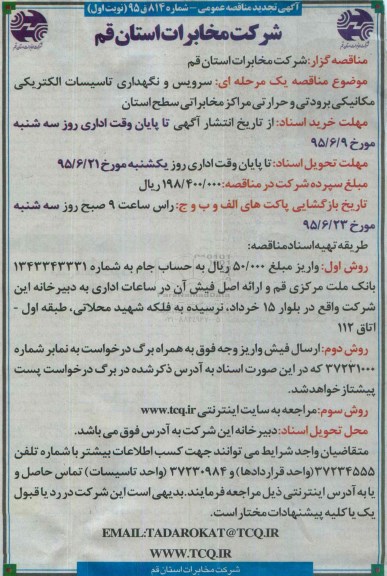 آگهی تجدید مناقصه عمومی - شماره ۸۱۴ ق ۹۵ (نوبت اول)
شرکت مخابرات استان قم
مناقصه گزار: شرکت مخابرات استان قم
موضوع مناقصه یک مرحله ای: سرویس و نگهداری تاسیسات الکتریکی
مکانیکی برودتی و حرارتی مراکز مخابراتی سطح استان
مهلت خرید اسناد: از تاریخ انتشار آگهی تا پایان وقت اداری روز سه شنبه
مورخ ۹۵/۶/۹
مهلت تحویل اسناد: تا پایان وقت اداری روز یکشنبه مورخ ۹۵/۶/۲۱
مبلغ سپرده شرکت در مناقصه: ۱۹۸/۴۰۰/۰۰۰ ریال
تاریخ بازگشایی پاکت های الف و ب و ج: راس ساعت ۹ صبح روز سه شنبه
مورخ ۹۵/۶/۲۳
طریقه تهیه اسناد مناقصه:
روش اول: واریز مبلغ ۵۰/۰۰۰ ریال به حساب جام به شماره ۱۳۴۳۳۴۳۳۳۱
بانک ملت مرکزی قم و ارائه اصل فیش آن در ساعات اداری به دبیرخانه این
شرکت واقع در بلوار ۱۵ خرداد، نرسیده به فلکه شهید محلاتی، طبقه اول -
اتاق ۱۱۲
روش دوم: ارسال فیش واریز وجه فوق به همراه برگ درخواست به نمابر شماره
۳۷۲۳۱۰۰۰ که در این صورت اسناد به آدرس ذکر شده در برگ درخواست پست
پیشتاز خواهد شد.
روش سوم: مراجعه به سایت اینترنتی www.tcq.ir
محل تحویل اسناد: دبیرخانه این شرکت به آدرس فوق می باشد.
متقاضیان واجد شرایط می توانند جهت کسب اطلاعات بیشتر با شماره تلفن
۳۷۲۳۴۵۵۵ (واحد قراردادها) و ۳۷۲۳۰۹۸۴ (واحد تاسیسات) تماس حاصل و
یا به آدرس اینترنتی ذیل مراجعه فرمایند. بدیهی است این شرکت در رد یا قبول
یک یا کلیه پیشنهادات مختار است.
EMAIL:TADAROKAT@TCQ.IR
WWW.TCQ.IR
شرکت مخابرات استان قم